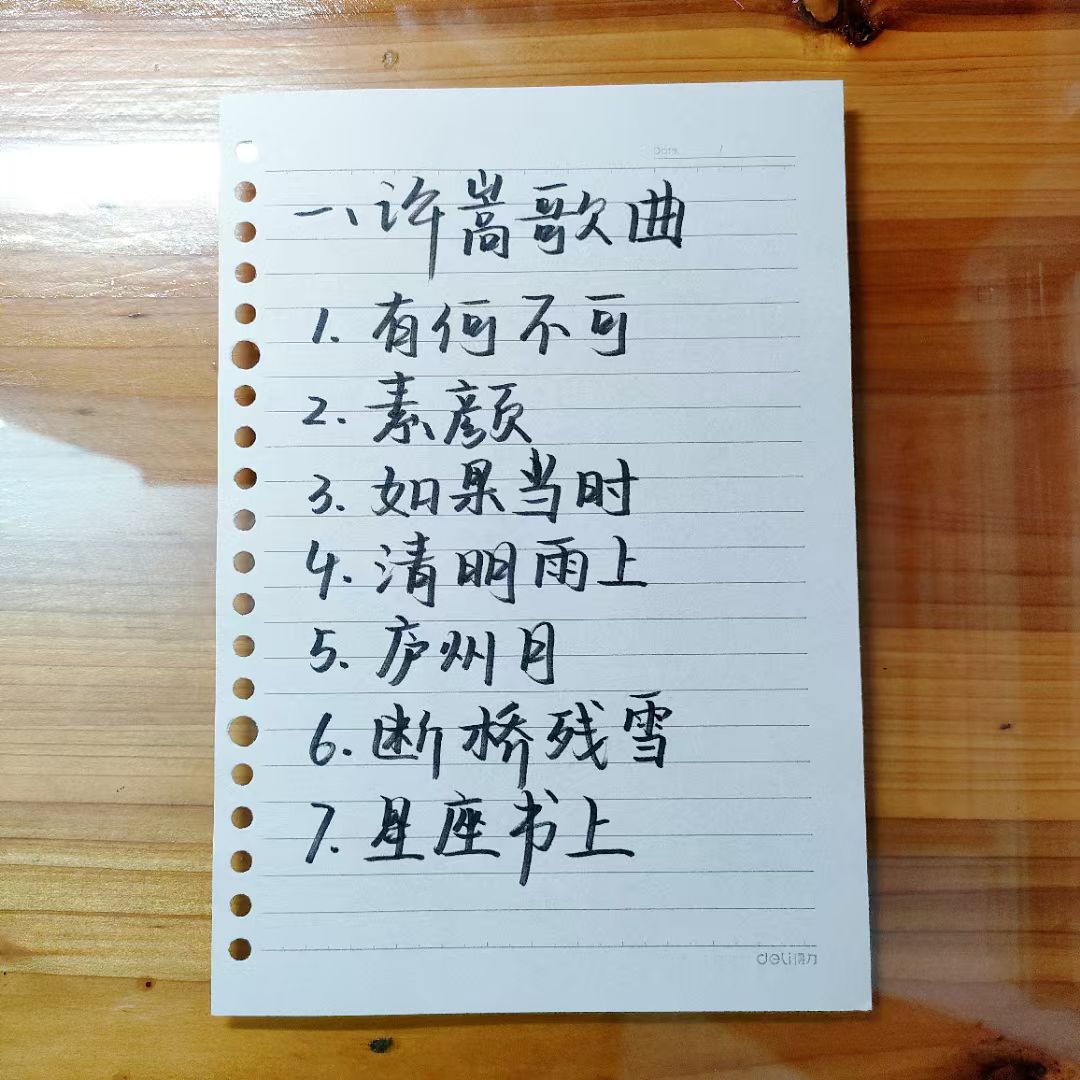 Date / /
一、许嵩歌曲
1. 有何不可
2. 素颜
3. 如果当时
4. 清明雨上
5. 庐州月
6. 断桥残雪
7. 星座书上
deli得力